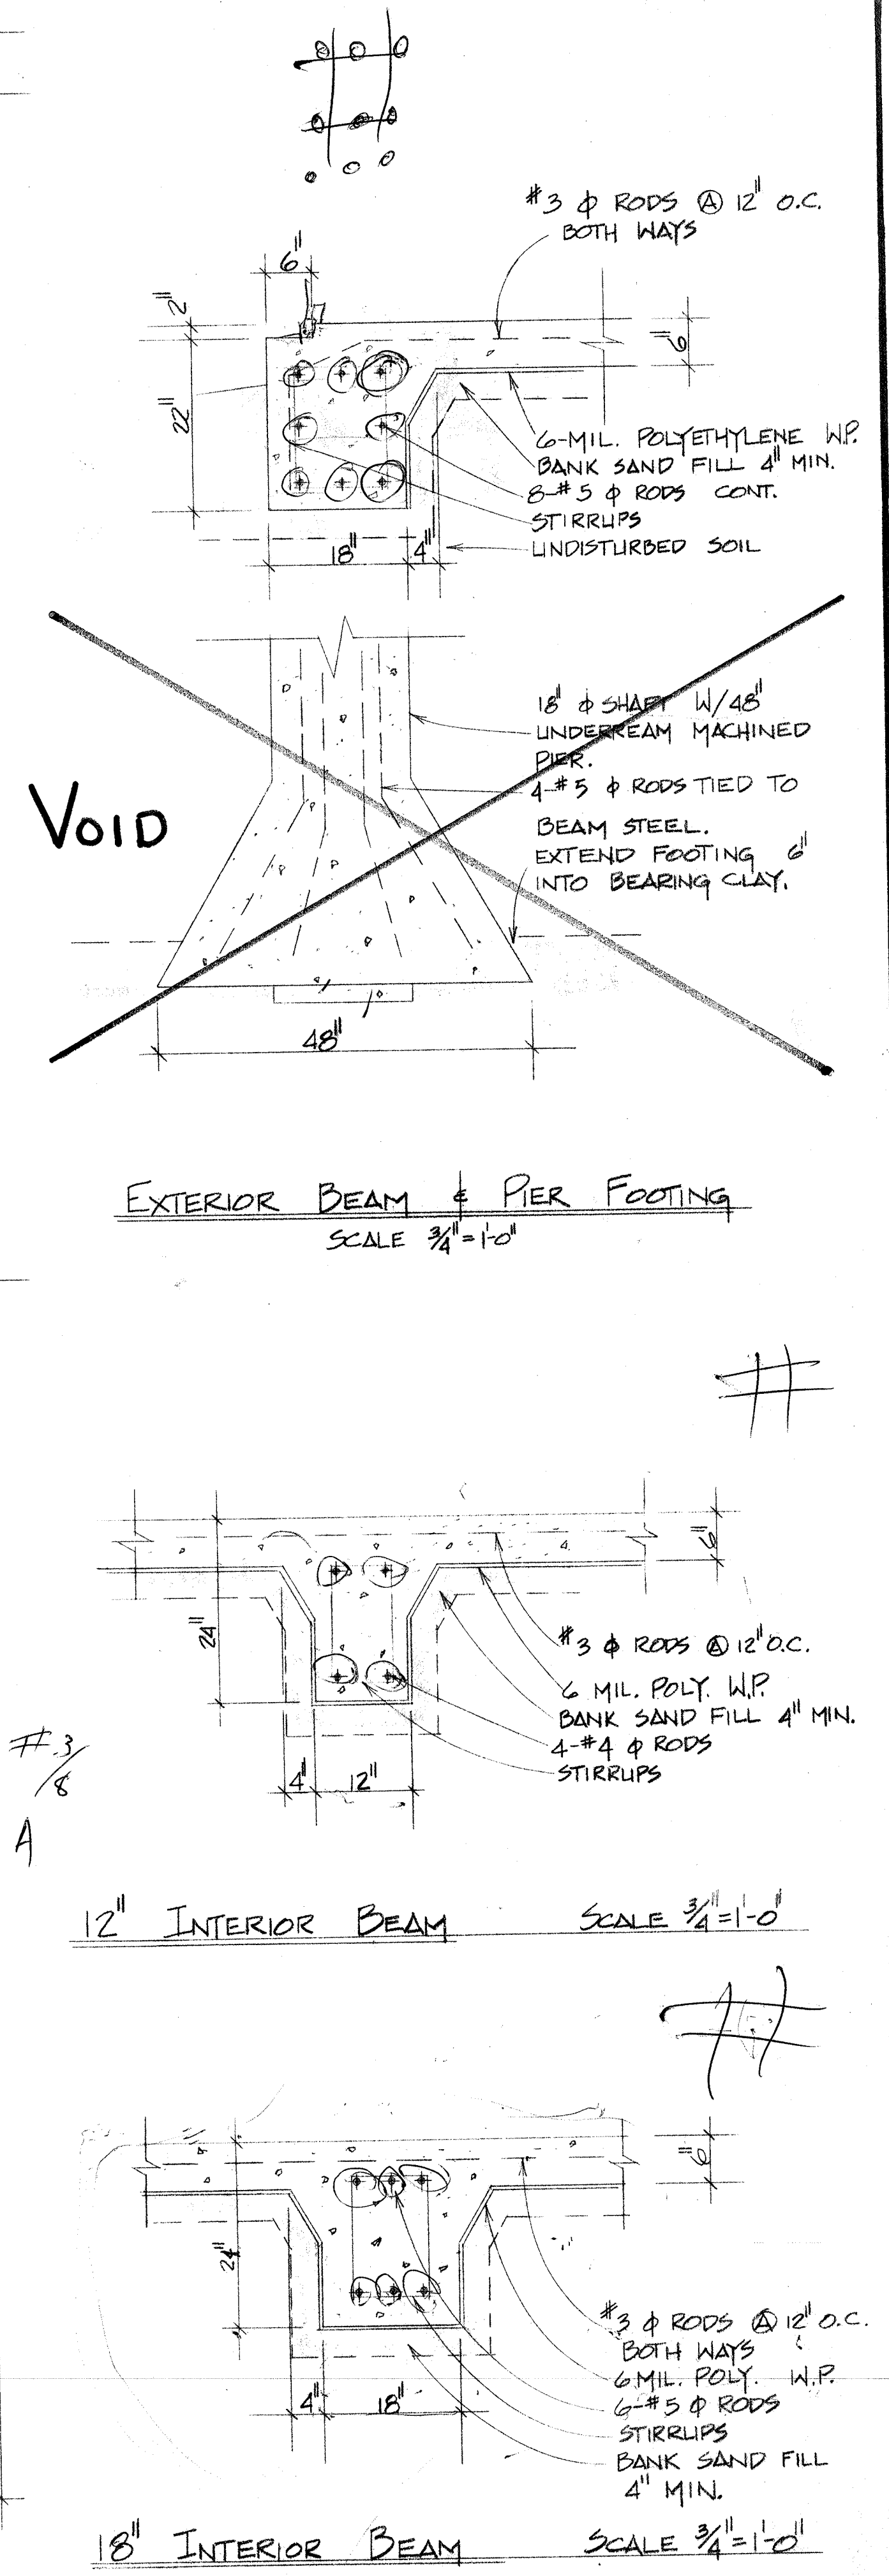 #3 ϕ RODS Ⓐ 12" O.C.
BOTH WAYS
6"
2"
6"
22"
6-MIL. POLYETHYLENE W.P.
BANK SAND FILL 4" MIN.
8-#5 ϕ RODS CONT.
STIRRUPS
UNDISTURBED SOIL
18"
4"
18" ϕ SHAFT W/48"
UNDERREAM MACHINED
PIER.
4-#5 ϕ RODS TIED TO
BEAM STEEL.
EXTEND FOOTING 6"
INTO BEARING CLAY.
VOID
48"
EXTERIOR BEAM & PIER FOOTING
SCALE 3/4"=1'-0"
#
6"
24"
#3 ϕ RODS Ⓐ 12" O.C.
6 MIL. POLY. W.P.
BANK SAND FILL 4" MIN.
4-#4 ϕ RODS
STIRRUPS
#3/8
4"
12"
A
12" INTERIOR BEAM SCALE 3/4"=1'-0"
#
6"
24"
#3 ϕ RODS Ⓐ 12" O.C.
BOTH WAYS
6 MIL. POLY. W.P.
6-#5 ϕ RODS
STIRRUPS
BANK SAND FILL
4" MIN.
4"
18"
18" INTERIOR BEAM SCALE 3/4"=1'-0"